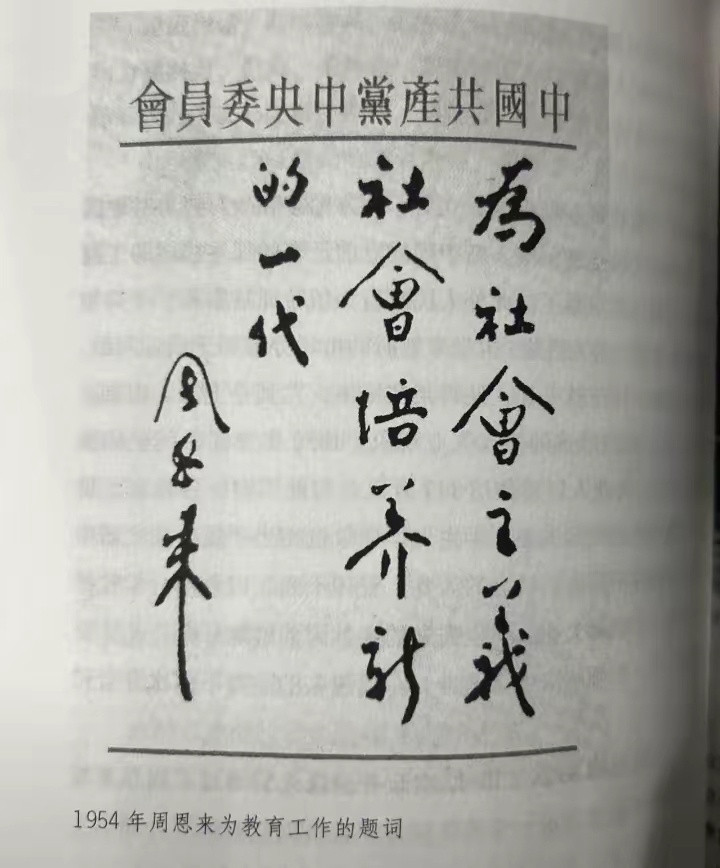 中國共產黨中央委員會
為社會主義
社會培养新
的一代
周恩来
1954年周恩来为教育工作的题词